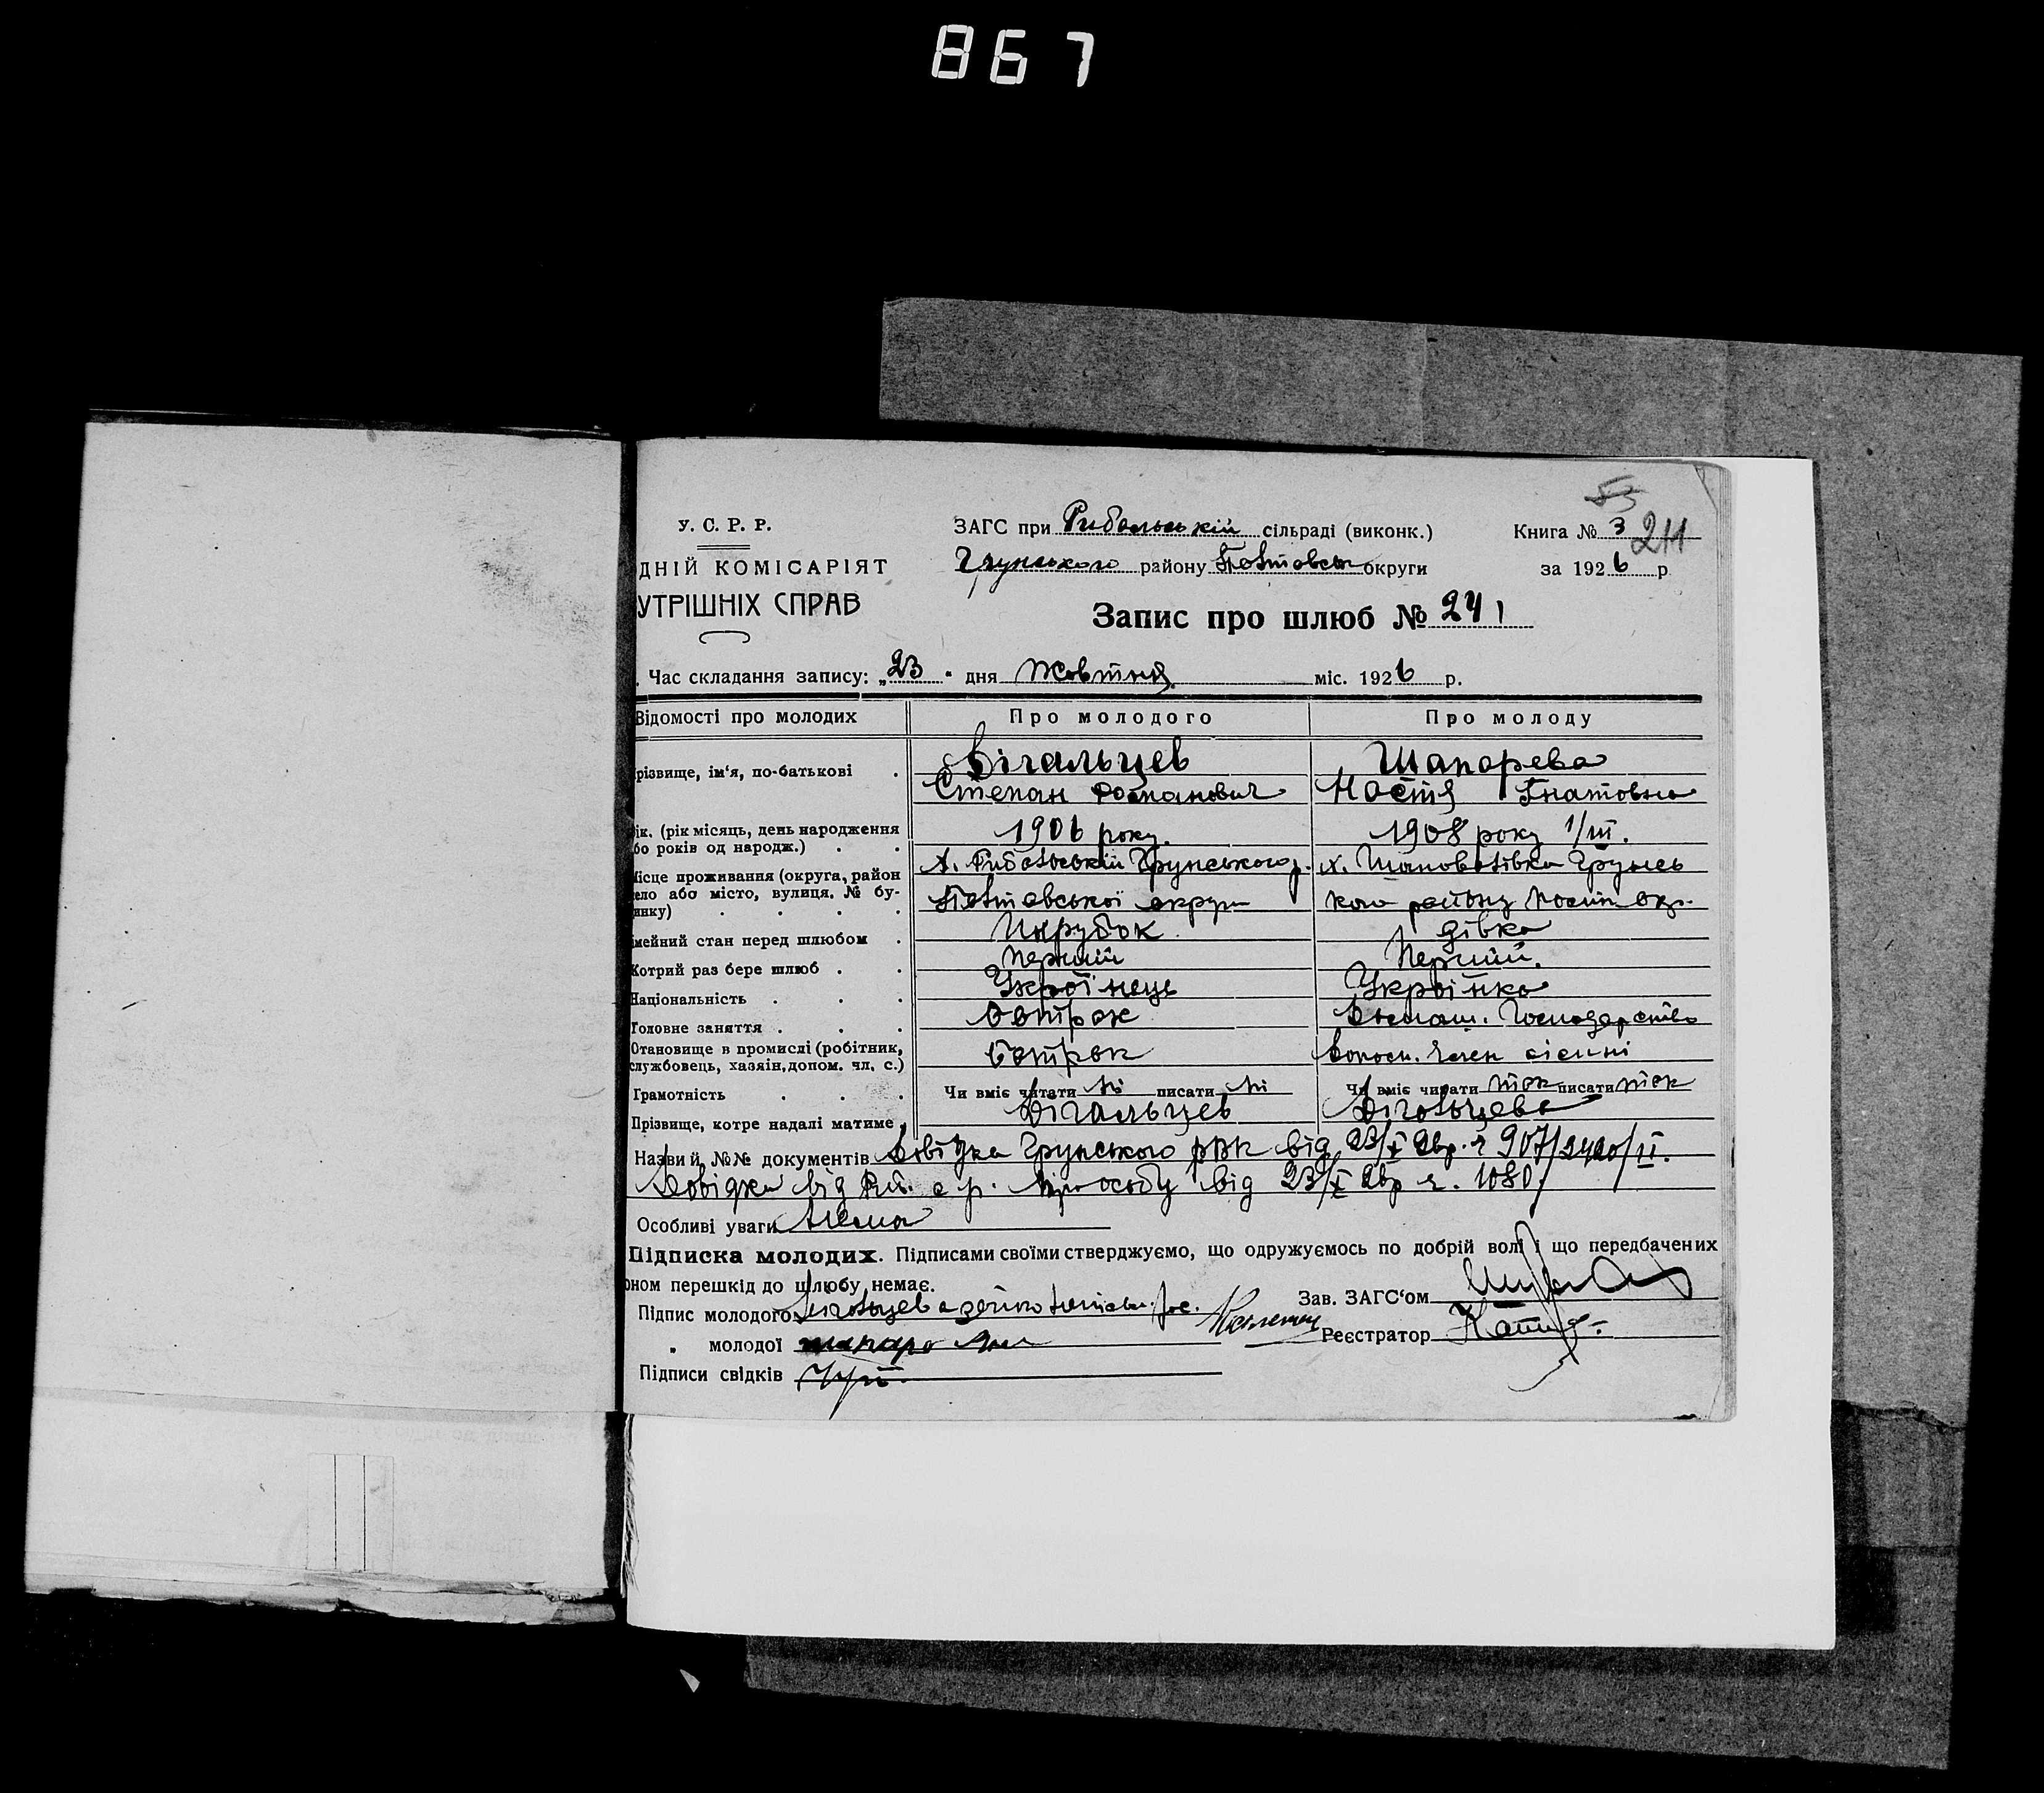 867
53
У. С. Р. Р.
ЗАГС при Рибальській сільраді (виконк.)
Книга № 3
211
ДНІЙ КОМІСАРІЯТ
Грунського району Полтовськ округи
за 1926 р
УТРІШНІХ СПРАВ
Запис про шлюб № 241
Час складання запису: „23“ дня Жовтня міс. 1926 р.
Відомості про молодих
Про молодого
Про молоду
різвище, ім'я, по-батькові .
Дігальцев
Шапорева
Степан Романович
Настя Гнатовна
ік. (рік місяць, день народження
бо років од народж.) . .
1906 року.
1908 року 1/III.
ісце проживання (округа, район
ело або місто, вулиця, № бу-
инку) . . . .
х. Рибальській Грунського р.
Полтовської округи
х. Шаповалівка Грунсь
кого району Полт окр.
мейний стан перед шлюбом .
Парубок
дівка
Котрий раз бере шлюб . .
Перший
Перший.
Національність . . .
Украінець
Украінка
Головне заняття . . .
Батрак
Домаш. Господарство
Становище в промислі (робітник,
службовець, хазяін, допом. чл. с.)
батрак
допом. член сісімї
Грамотність . . .
Чи вміє читати ні писати ні
Чи вміє читати так писати так
Прізвище, котре надалі матиме
Дігальцев
Дігальцева
Назви й №№ документів Довідка Грунського РВК від 23/X 26р. ч 907/2420/II.
Довідка від Риб. с р. про особу від 23/X 26р ч. 1080
Особливі уваги Нема
Підписка молодих. Підписами своїми стверджуємо, що одружуємось по добрій волі і що передбачених
оном перешкід до шлюбу немає.
Підпис молодого
Зав. ЗАГС'ом
„ молодої
Реєстратор
Підписи свідків